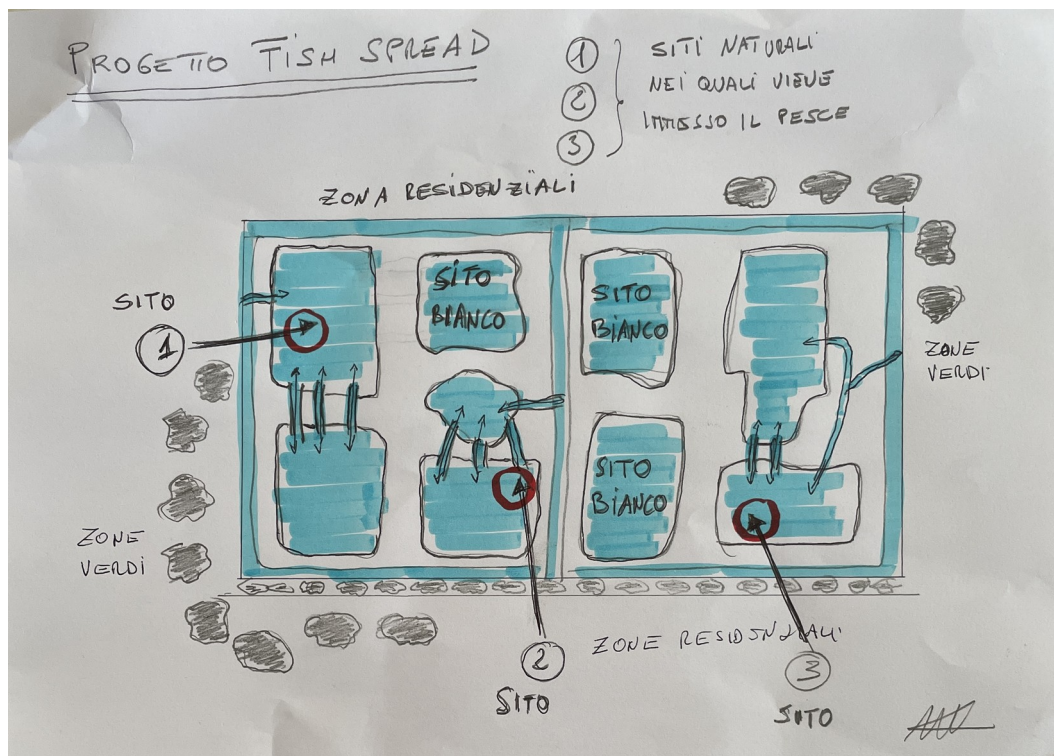 PROGETTO FISH SPREAD
1
2
3
SITI NATURALI
NEI QUALI VIENE
IMMESSO IL PESCE
ZONA RESIDENZIALI
SITO
1
SITO
BIANCO
SITO
BIANCO
SITO
BIANCO
ZONE
VERDI
ZONE
VERDI
2
SITO
ZONE RESIDENZIALI
3
SITO